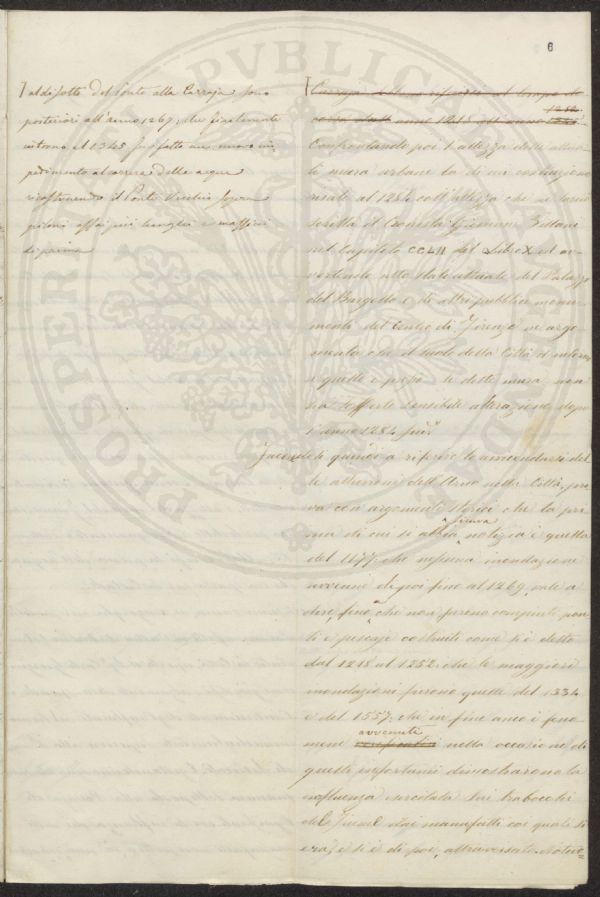 6
al di sotto del Ponte alla Carraja sono
posteriori all'anno 1269; che finalmente
intorno al 1345 fu fatto un nuovo im
pedimento al correre delle acque
ricostruendo il Ponte Vecchio sopra
piloni assai più larghi e massicci
di prima
Carraja
anno 1218 all'anno
1252.
Confrontando poi l'altezza delle attua
li mura urbane la di cui costruzione
risale al 1284 coll'altezza che ne lasciò
scritta il Cronista Giovanni Villani
nel Capitolo CCLII del Libro X ed av
vertendo allo stato attuale del Palazzo
del Bargello e di altri pubblici monu
menti del centro di Firenze ne argo
menta che il suolo della Città d'intorno
a quelle e presso le dette mura non
ha sofferto sensibile alterazione dopo
l'anno 1284
Facendosi quindi a riferire le vicende del
le alluvioni dell'Arno nella Città, pro
va con argomenti storici che la pri
ma di cui si abbia sicura notizia è quella
del 1177, che nessuna inondazione
avvenne di poi fino al 1269, vale a
dire, fino a che non furono compiuti pon
ti e pescaje costruiti come si è detto
dal 1218 al 1252; che le maggiori
inondazioni furono quelle del 1334
e del 1557. che in fine anco i feno
meni avvenuti nella occasione di
queste importanti dimostrarono la
influenza esercitata sui trabocchi
del Fiume dai manufatti coi quali si
era, e si è di poi, attraversato.